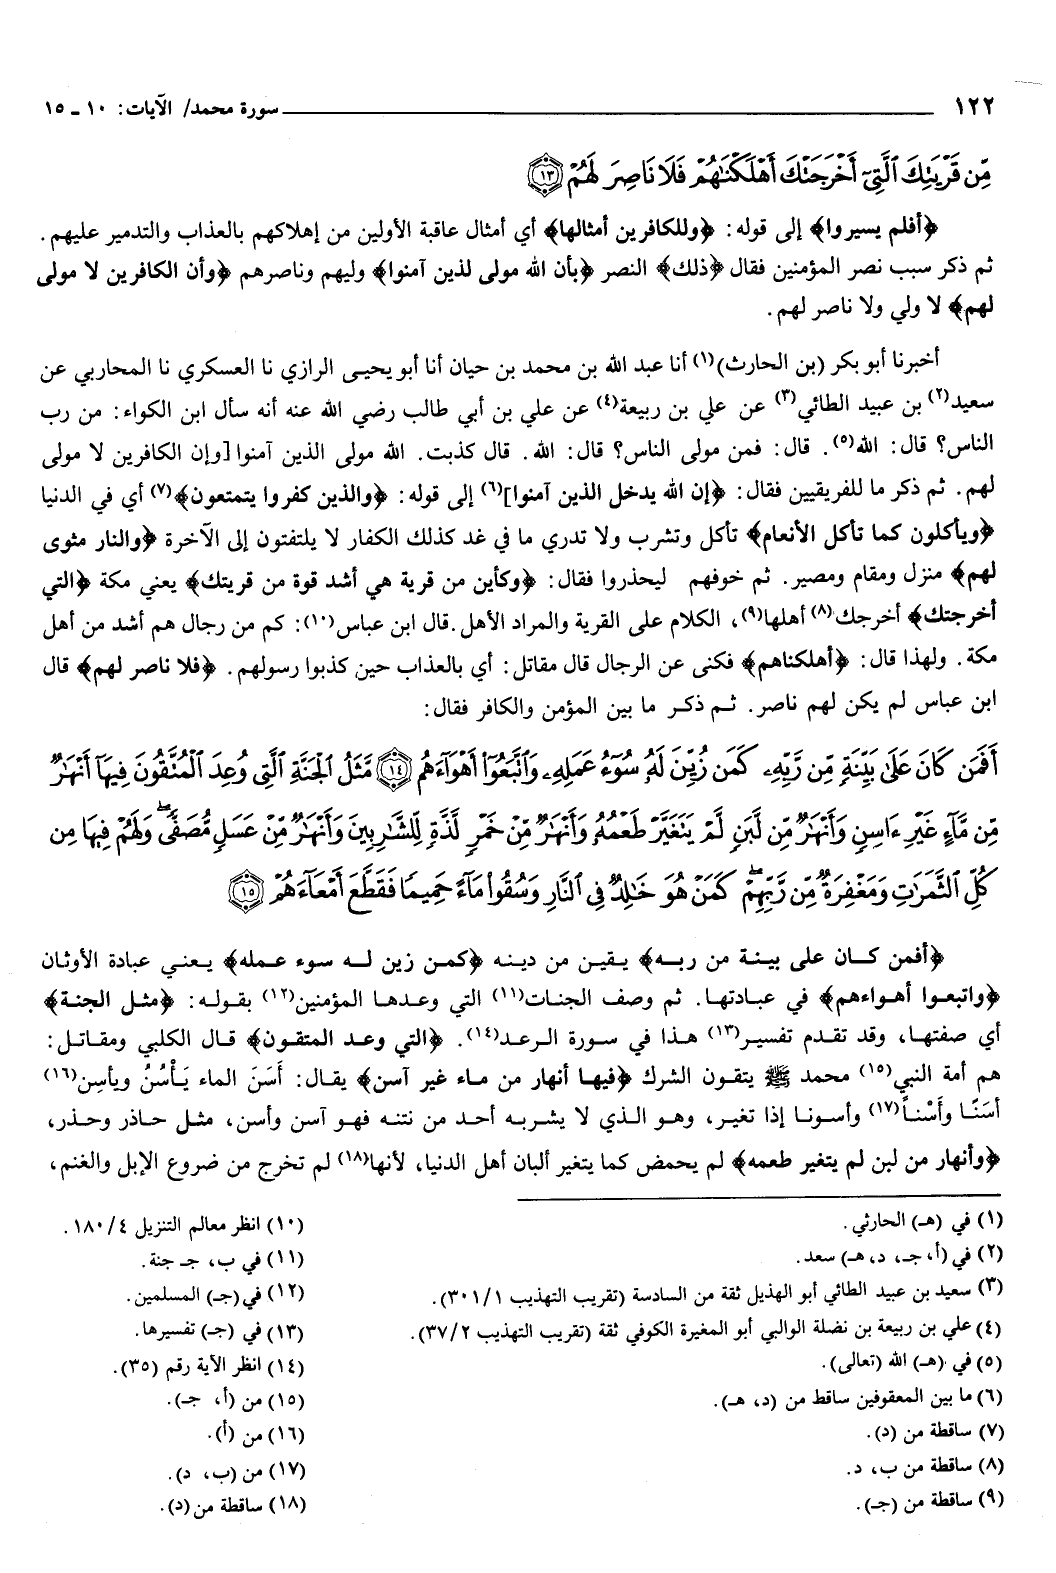 ١٢٢ سورة محمد/ الآيات: ١٠ ـ ١٥
مِّن قَرْيَتِكَ ٱلَّتِىٓ أَخْرَجَتْكَ أَهْلَكْنَٰهُمْ فَلَا نَاصِرَ لَهُمْ ﴿١٣﴾
﴿أفلم يسيروا﴾ إلى قوله: ﴿وللكافرين أمثالها﴾ أي أمثال عاقبة الأولين من إهلاكهم بالعذاب والتدمير عليهم.
ثم ذكر سبب نصر المؤمنين فقال ﴿ذلك﴾ النصر ﴿بأن الله مولى لذين آمنوا﴾ وليهم وناصرهم ﴿وأن الكافرين لا مولى
لهم﴾ لا ولي ولا ناصر لهم.
أخبرنا أبو بكر (بن الحارث)(١) أنا عبد الله بن محمد بن حيان أنا أبو يحيى الرازي نا العسكري نا المحاربي عن
سعيد(٢) بن عبيد الطائي(٣) عن علي بن ربيعة(٤) عن علي بن أبي طالب رضي الله عنه أنه سأل ابن الكواء: من رب
الناس؟ قال: الله(٥). قال: فمن مولى الناس؟ قال: الله. قال كذبت. الله مولى الذين آمنوا [وإن الكافرين لا مولى
لهم. ثم ذكر ما للفريقيين فقال: ﴿إن الله يدخل الذين آمنوا](٦) إلى قوله: ﴿والذين كفروا يتمتعون﴾(٧) أي في الدنيا
﴿ويأكلون كما تأكل الأنعام﴾ تأكل وتشرب ولا تدري ما في غد كذلك الكفار لا يلتفتون إلى الآخرة ﴿والنار مثوى
لهم﴾ منزل ومقام ومصير. ثم خوفهم ليحذروا فقال: ﴿وكأين من قرية هي أشد قوة من قريتك﴾ يعني مكة ﴿التي
أخرجتك﴾ أخرجك(٨) أهلها(٩)، الكلام على القرية والمراد الأهل. قال ابن عباس(١٠): كم من رجال هم أشد من أهل
مكة. ولهذا قال: ﴿أهلكناهم﴾ فكنى عن الرجال قال مقاتل: أي بالعذاب حين كذبوا رسولهم. ﴿فلا ناصر لهم﴾ قال
ابن عباس لم يكن لهم ناصر. ثم ذكر ما بين المؤمن والكافر فقال:
أَفَمَن كَانَ عَلَىٰ بَيِّنَةٍ مِّن رَّبِّهِۦ كَمَن زُيِّنَ لَهُۥ سُوٓءُ عَمَلِهِۦ وَٱتَّبَعُوٓا۟ أَهْوَآءَهُم ﴿١٤﴾ مَّثَلُ ٱلْجَنَّةِ ٱلَّتِى وُعِدَ ٱلْمُتَّقُونَ فِيهَآ أَنْهَٰرٌ
مِّن مَّآءٍ غَيْرِ ءَاسِنٍ وَأَنْهَٰرٌ مِّن لَّبَنٍ لَّمْ يَتَغَيَّرْ طَعْمُهُۥ وَأَنْهَٰرٌ مِّنْ خَمْرٍ لَّذَّةٍ لِّلشَّٰرِبِينَ وَأَنْهَٰرٌ مِّنْ عَسَلٍ مُّصَفًّى ۖ وَلَهُمْ فِيهَا مِن
كُلِّ ٱلثَّمَرَٰتِ وَمَغْفِرَةٌ مِّن رَّبِّهِمْ ۖ كَمَنْ هُوَ خَٰلِدٌ فِى ٱلنَّارِ وَسُقُوا۟ مَآءً حَمِيمًا فَقَطَّعَ أَمْعَآءَهُمْ ﴿١٥﴾
﴿أفمن كان على بينة من ربه﴾ يقين من دينه ﴿كمن زين له سوء عمله﴾ يعني عبادة الأوثان
﴿واتبعوا أهواءهم﴾ في عبادتها. ثم وصف الجنات(١١) التي وعدها المؤمنين(١٢) بقوله: ﴿مثل الجنة﴾
أي صفتها، وقد تقدم تفسير(١٣) هذا في سورة الرعد(١٤). ﴿التي وعد المتقون﴾ قال الكلبي ومقاتل:
هم أمة النبي(١٥) محمد ﷺ يتقون الشرك ﴿فيها أنهار من ماء غير آسن﴾ يقال: أَسَنَ الماء يَأْسُنُ ويأسِن(١٦)
أسَنًا وأَسْناً(١٧) وأسونا إذا تغير، وهو الذي لا يشربه أحد من نتنه فهو آسن وأسن، مثل حاذر وحذر،
﴿وأنهار من لبن لم يتغير طعمه﴾ لم يحمض كما يتغير ألبان أهل الدنيا، لأنها(١٨) لم تخرج من ضروع الإبل والغنم،
(١) في (هـ) الحارثي.
(٢) في (أ، جـ، د، هـ) سعد.
(٣) سعيد بن عبيد الطائي أبو الهذيل ثقة من السادسة (تقريب التهذيب ٣٠١/١).
(٤) علي بن ربيعة بن نضلة الوالبي أبو المغيرة الكوفي ثقة (تقريب التهذيب ٣٧/٢).
(٥) في (هـ) الله (تعالى).
(٦) ما بين المعقوفين ساقط من (د، هـ).
(٧) ساقطة من (د).
(٨) ساقطة من ب، د.
(٩) ساقطة من (جـ).
(١٠) انظر معالم التنزيل ١٨٠/٤.
(١١) في ب، جـ جنة.
(١٢) في (جـ) المسلمين.
(١٣) في (جـ) تفسيرها.
(١٤) انظر الآية رقم (٣٥).
(١٥) من (أ، جـ).
(١٦) من (أ).
(١٧) من (ب، د).
(١٨) ساقطة من (د).